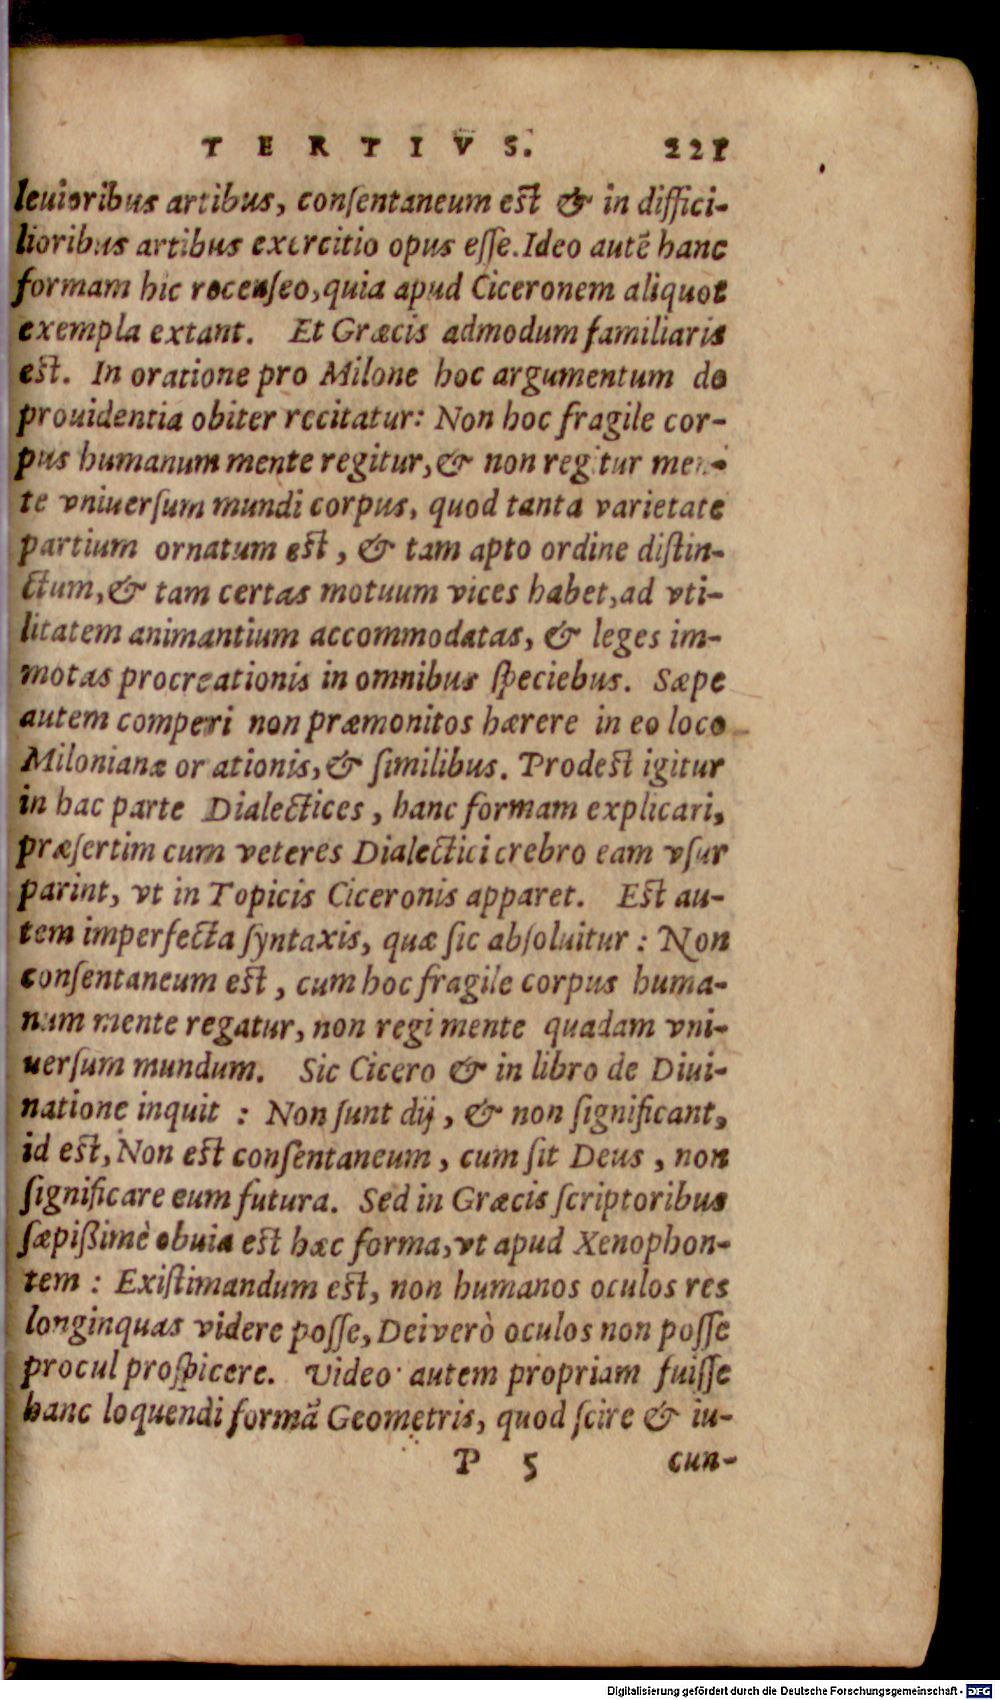 TERTIVS. 221
leuioribus artibus, conſentaneum eſt & in diffici-
lioribus artibus exercitio opus eſſe. Ideo autē hanc
formam hic recenſeo, quia apud Ciceronem aliquot
exempla extant. Et Græcis admodum familiaris
eſt. In oratione pro Milone hoc argumentum de
prouidentia obiter recitatur: Non hoc fragile cor-
pus humanum mente regitur, & non regitur men-
te vniuerſum mundi corpus, quod tanta varietate
partium ornatum eſt, & tam apto ordine diſtin-
ctum, & tam certas motuum vices habet, ad vti-
litatem animantium accommodatas, & leges im-
motas procreationis in omnibus ſpeciebus. Sæpe
autem comperi non præmonitos hærere in eo loco
Milonianæ orationis, & ſimilibus. Prodeſt igitur
in hac parte Dialectices, hanc formam explicari,
præſertim cum veteres Dialectici crebro eam vſur
parint, vt in Topicis Ciceronis apparet. Eſt au-
tem imperfecta ſyntaxis, quæ ſic abſoluitur: Non
conſentaneum eſt, cum hoc fragile corpus huma-
num mente regatur, non regi mente quadam vni-
uerſum mundum. Sic Cicero & in libro de Diui-
natione inquit: Non ſunt dij, & non ſignificant,
id eſt, Non eſt conſentaneum, cum ſit Deus, non
ſignificare eum futura. Sed in Græcis ſcriptoribus
ſæpißimè obuia eſt hæc forma, vt apud Xenophon-
tem: Exiſtimandum eſt, non humanos oculos res
longinquas videre poſſe, Dei verò oculos non poſſe
procul proſpicere. Video autem propriam fuiſſe
hanc loquendi formā Geometris, quod ſcire & iu-
P 5 cun-
Digitalisierung gefördert durch die Deutsche Forschungsgemeinschaft - DFG